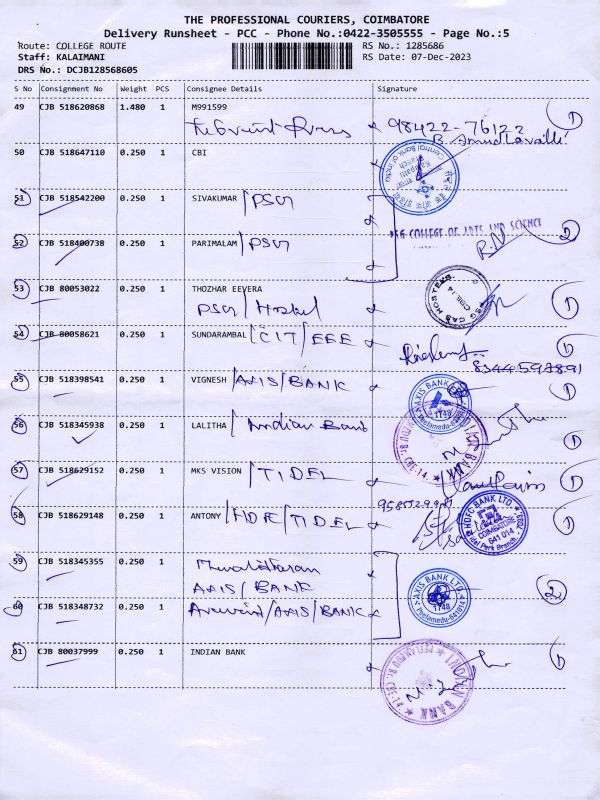 THE PROFESSIONAL COURIERS, COIMBATORE
Delivery Runsheet - PCC - Phone No.:0422-3505555 - Page No.:5
Route: COLLEGE ROUTE
Staff: KALAIMANI
DRS No.: DCJB128568605
RS No.: 1285686
RS Date: 07-Dec-2023
S No Consignment No Weight PCS Consignee Details Signature
49 CJB 518620868 1.480 1 M991599
98422-76122 1
50 CJB 518647110 0.250 1 CBI
Central Bank of India
51 CJB 518542200 0.250 1 SIVAKUMAR /PSG
PSG COLLEGE OF ARTS AND SCIENCE 2
52 CJB 518400738 0.250 1 PARIMALAM /PSG
53 CJB 80053022 0.250 1 THOZHAR EEVERA
PSG/Hostel 1
54 CJB 80058621 0.250 1 SUNDARAMBAL /CIT/EEE 1
8344597891
55 CJB 518398541 0.250 1 VIGNESH /AXIS/BANK 1
AXIS BANK LTD. 1748
56 CJB 518345938 0.250 1 LALITHA /Indian Bank 1
INDIAN BANK
57 CJB 518629152 0.250 1 MKS VISION /TIDEL 1
58 CJB 518629148 0.250 1 ANTONY /HDFC/TIDEL 1
HDFC BANK LTD. COIMBATORE 641 014
59 CJB 518345355 0.250 1
AXIS/BANK
AXIS BANK LTD. 1748 2
60 CJB 518348732 0.250 1 Aravind/AXIS/BANK
61 CJB 80037999 0.250 1 INDIAN BANK 1
INDIAN BANK